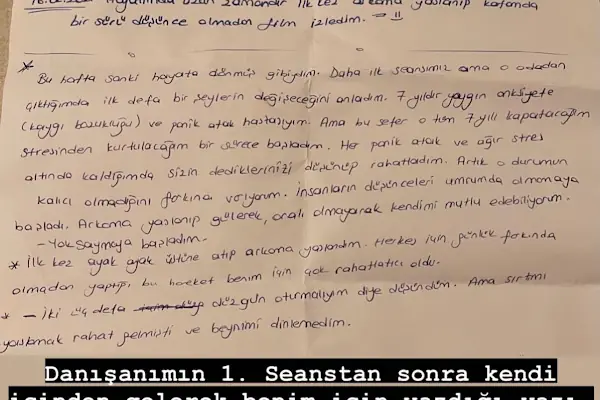 Hayatımda uzun zamandır ilk kez arkama yaslanıp kafamda
bir sürü düşünce olmadan film izledim.
* Bu hafta sanki hayata dönmüş gibiydim. Daha ilk seansımız ama o odadan
çıktığımda ilk defa bir şeylerin değişeceğini anladım. 7 yıldır yaygın anksiyete
(kaygı bozukluğu) ve panik atak hastasıyım. Ama bu sefer o tüm 7 yılı kapatacağım
stresinden kurtulacağım bir sürece başladım. Her panik atak ve ağır stres
altında kaldığımda sizin dediklerinizi düşünüp rahatladım. Artık o durumun
kalıcı olmadığını farkına varıyorum. İnsanların düşünceleri umrumda olmamaya
başladı. Arkama yaslanıp gülerek, oralı olmayarak kendimi mutlu edebiliyorum.
- Yok saymaya başladım.
* İlk kez ayak ayak üstüne atıp arkama yaslandım. Herkes için günlük farkında
olmadan yaptığı, bu hareket benim için çok rahatlatıcı oldu.
* - İki üç defa düzgün oturmalıyım diye düşündüm. Ama sırtımı
yaslamak rahat gelmişti ve beynimi dinlemedim.
Danışanımın 1. Seanstan sonra kendi
içinden gelerek benim için yazdığı yazı.